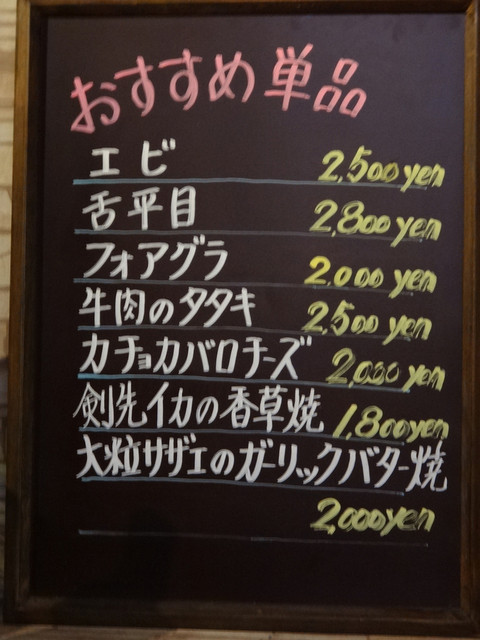 おすすめ単品
エビ 2,500yen
舌平目 2,800yen
フォアグラ 2,000yen
牛肉のタタキ 2,500yen
カチョカバロチーズ 2,000yen
剣先イカの香草焼 1,800yen
大粒サザエのガーリックバター焼
2,000yen